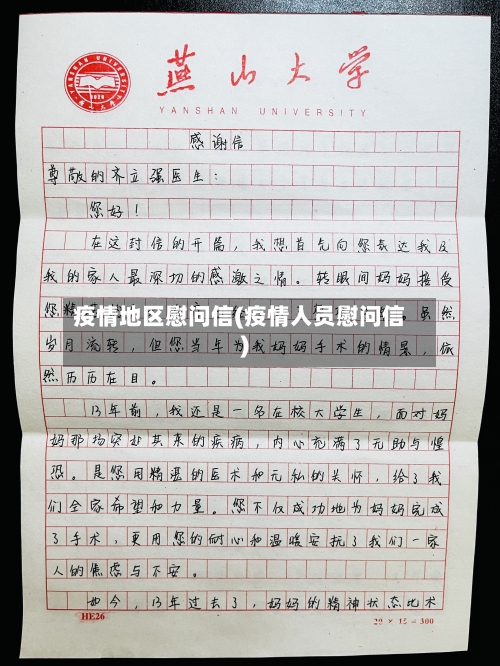 燕山大学
YANSHAN UNIVERSITY
1920
感谢信
尊敬的齐立强医生：
您好！
在这封信的开篇，我想首先向您表达我及
我的家人最深切的感激之情。转眼间妈妈接受
您精
虽然
疫情地区慰问信(疫情人员慰问信
)
岁月流转，但您当年为我妈妈手术的情景，依
然历历在目。
13年前，我还是一名在校大学生，面对妈
妈那场突如其来的疾病，内心充满了无助与惶
恐。是您用精湛的医术和无私的关怀，给了我
们全家希望和力量。您不仅成功地为妈妈完成
了手术，更用您的耐心和温暖安抚了我们一家
人的焦虑与不安。
如今，13年过去了，妈妈的精神状态比术
HE26
20 × 15 = 300